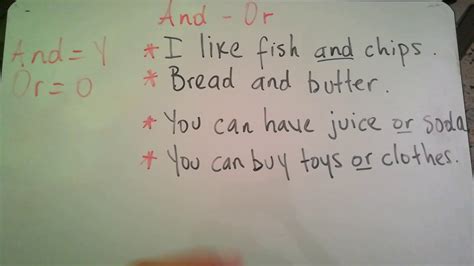 And - Or
And = Y
Or = O
* I like fish and chips.
* Bread and butter.
* You can have juice or soda
* You can buy toys or clothes.